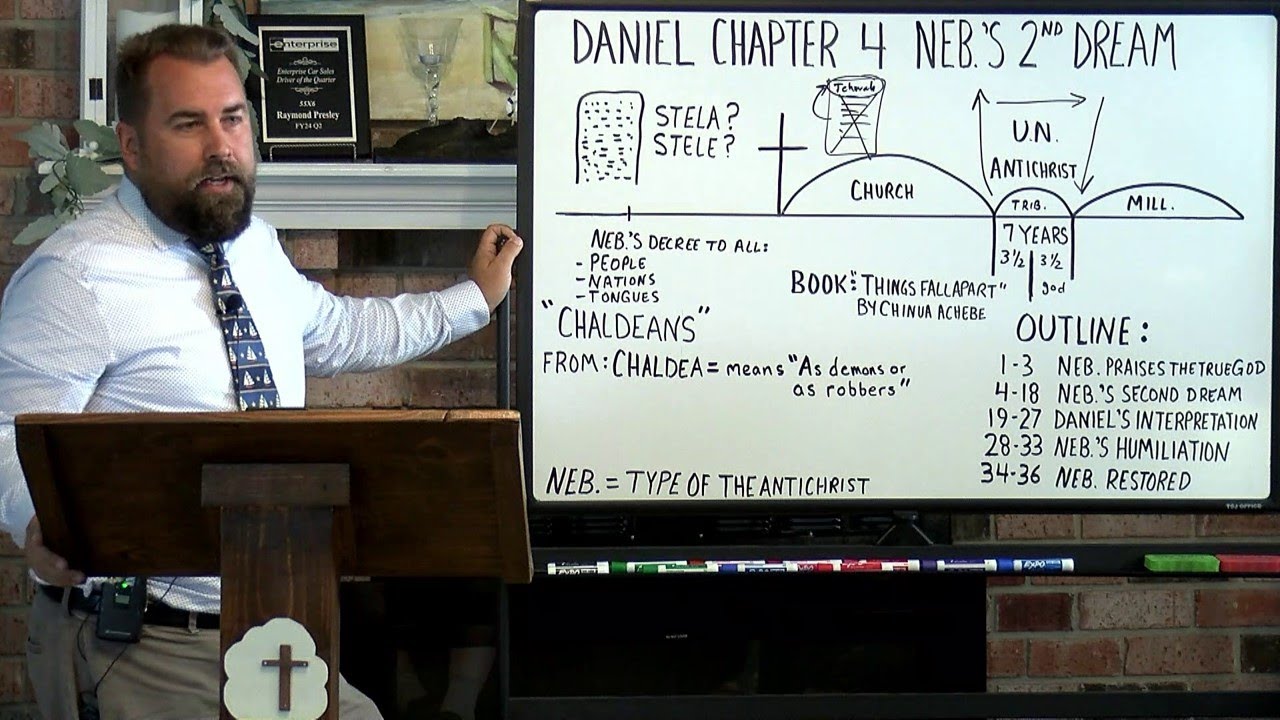 enterprise
Enterprise Car Sales
Driver of the Quarter
55X6
Raymond Presley
FY24 Q2
DANIEL CHAPTER 4 NEB.'S 2ND DREAM
STELA?
STELE?
Jehovah
U.N.
ANTICHRIST
CHURCH
TRIB.
MILL.
7 YEARS
3½ 3½
god
NEB.'S DECREE TO ALL:
- PEOPLE
- NATIONS
- TONGUES
BOOK: "THINGS FALL APART"
BY CHINUA ACHEBE
"CHALDEANS"
FROM: CHALDEA = means "As demons or
as robbers"
OUTLINE:
1-3 NEB. PRAISES THE TRUE GOD
4-18 NEB.'S SECOND DREAM
19-27 DANIEL'S INTERPRETATION
28-33 NEB.'S HUMILIATION
34-36 NEB. RESTORED
NEB. = TYPE OF THE ANTICHRIST
TSJ OFFICE
EXPO
EXPO